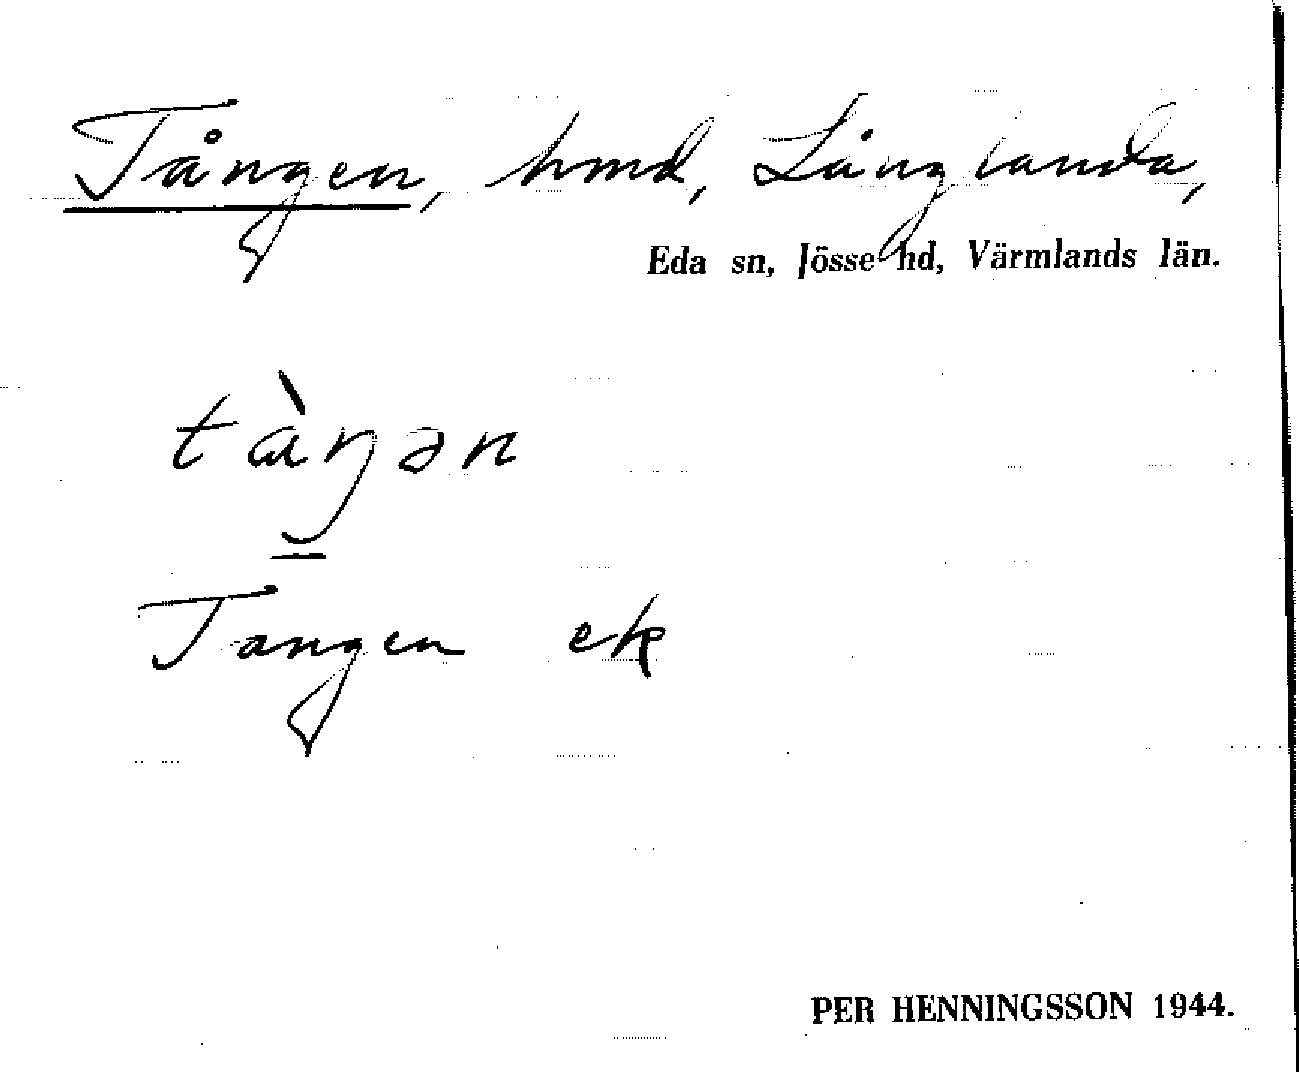 Tången, hmd, Långlanda,
Eda sn, Jösse hd, Värmlands län.
tàŋən
Tangen ek
PER HENNINGSSON 1944.